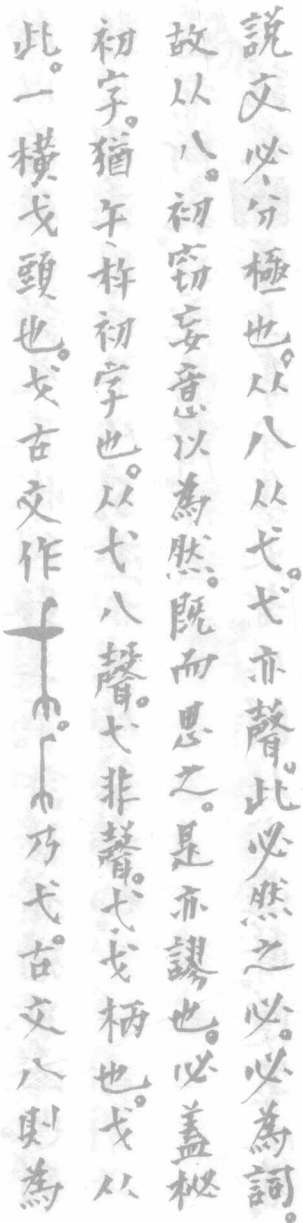 說文必、分極也。从八从弋。弋亦聲。此必然之必。必為詞。
故从八。初窃妄意以為然。既而思之。是亦謬也。必蓋柲
初字。猶午、杵初字也。从弋八聲。弋非聲。弋、戈柄也。戈从
此。一橫戈頭也。戈古文作。乃弋。古文八則為